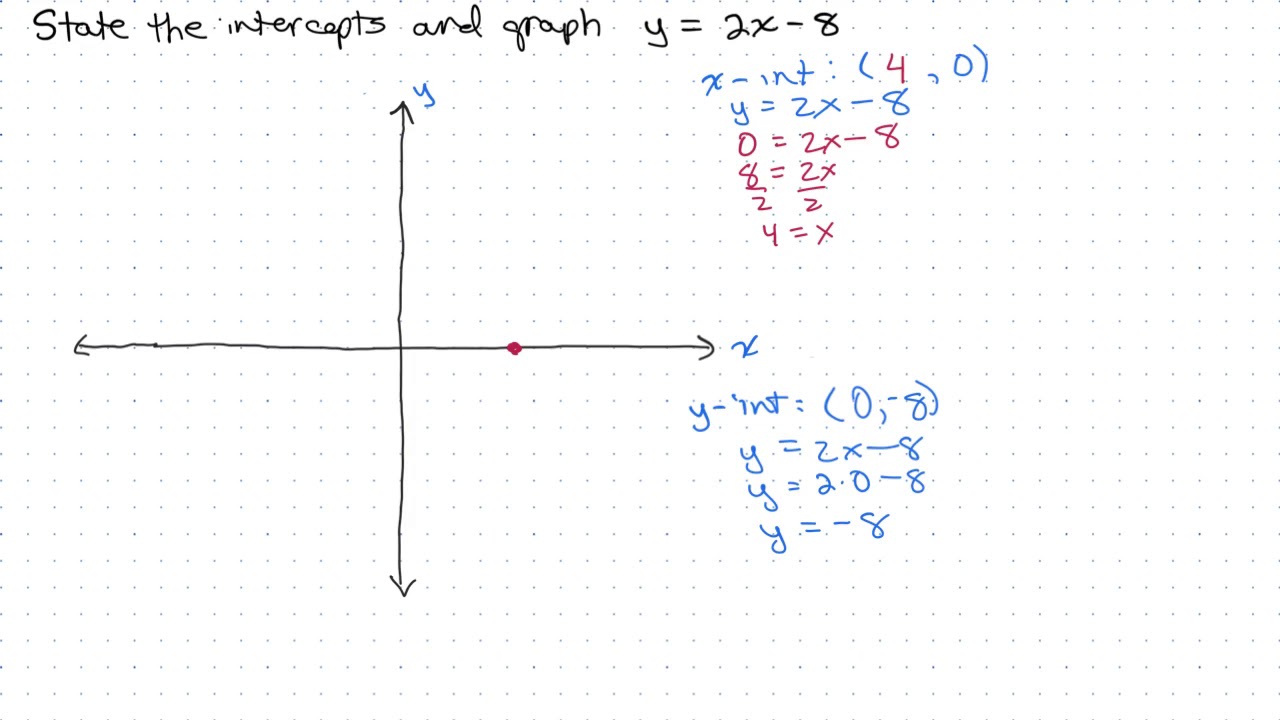 State the intercepts and graph y = 2x - 8
x-int: (4, 0)
y = 2x - 8
0 = 2x - 8
8 = 2x
2 2
4 = x
y
x
y-int: (0, -8)
y = 2x - 8
y = 2·0 - 8
y = -8